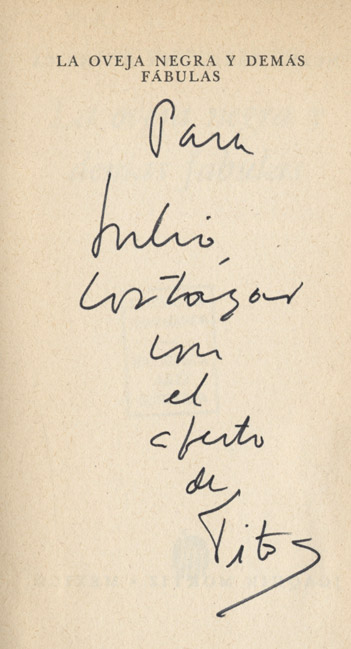 LA OVEJA NEGRA Y DEMÁS
FÁBULAS
Para
Julio
Cortázar
con
el
afecto
de
Tito